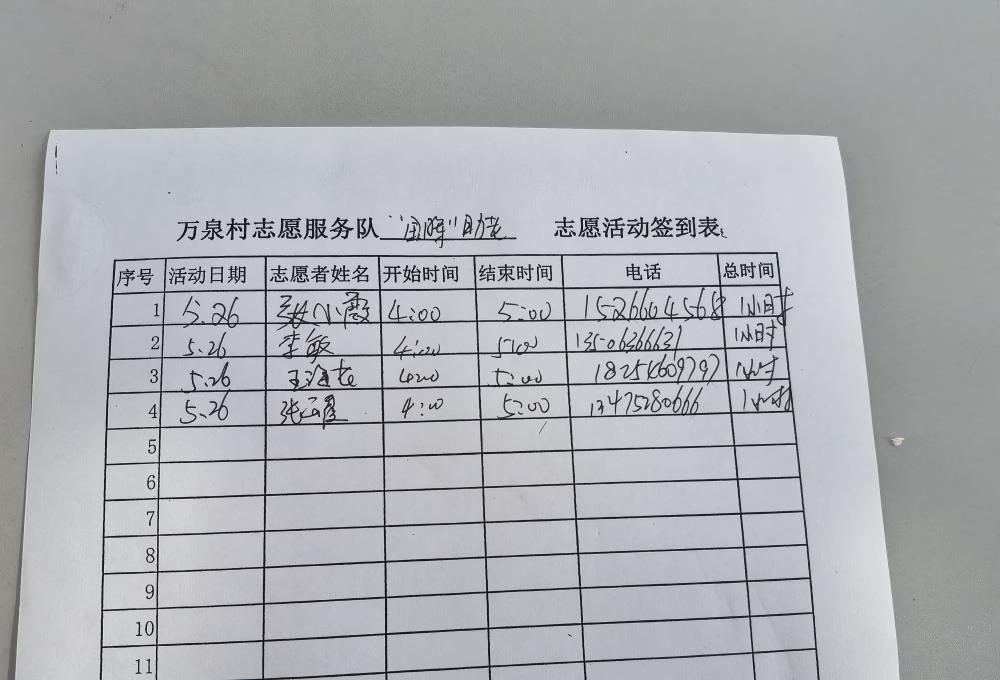 万泉村志愿服务队 助老 志愿活动签到表
序号 活动日期 志愿者姓名 开始时间 结束时间 电话 总时间
1 5.26 张小霞 4:00 5:00 15266045668 1小时
2 5.26 李敏 4:00 5:00 13506366631 1小时
3 5.26 4:00 5:00 18254609797 1小时
4 5.26 张 4:00 5:00 13475280666 1小时
5
6
7
8
9
10
11